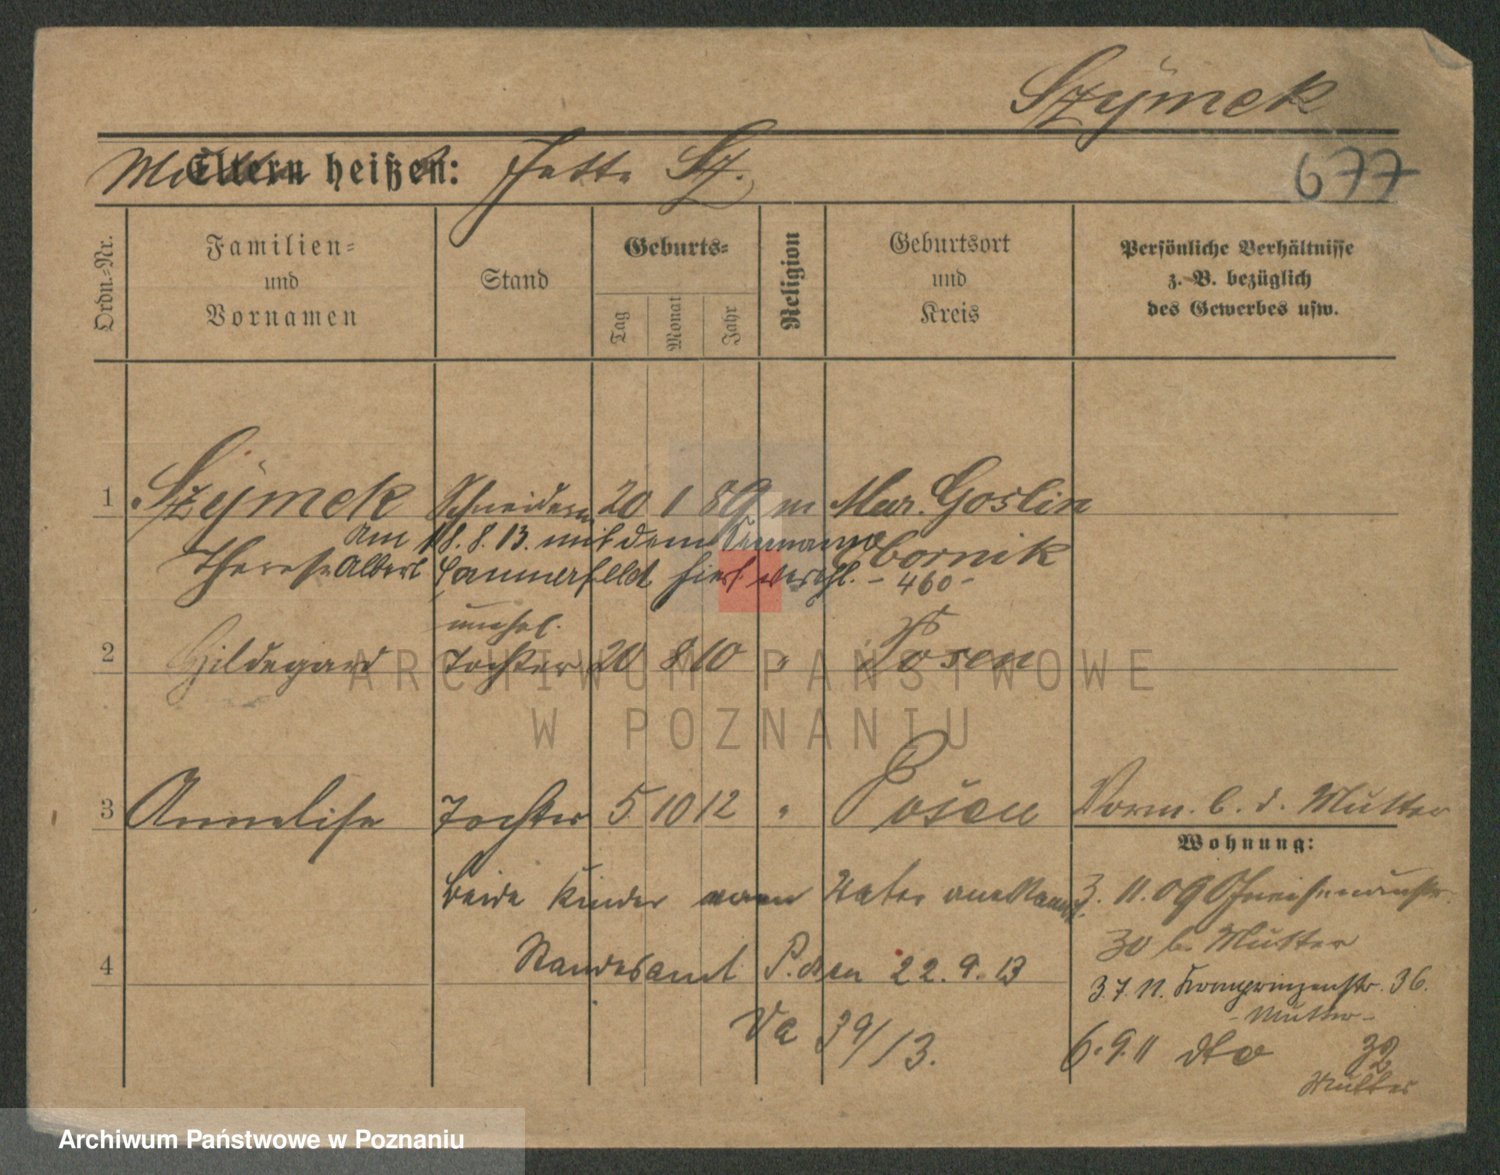 Szymek
Eltern heißen: Sz.
677
Ordn.-Nr.
Familien-
und
Vornamen
Stand
Geburts-
Tag
Monat
Jahr
Religion
Geburtsort
und
Kreis
Persönliche Verhältnisse
z. B. bezüglich
des Gewerbes usw.
1 Szymek Schneiderin 20 1 89 m Mur. Goslin
Am 18.8.13. mit dem
Therese Albert hier verehl. Obornik
- 460 -
unehel.
2 Hildegard Tochter 20 8 10 " Posen
ARCHIWUM PAŃSTWOWE
W POZNANIU
3 Annelise Tochter 5 10 12 " Posen Vorm. b. d. Mutter
Wohnung:
Beide Kinder vom Vater anerkannt
3.11.09 Gneisenaustr.
30 b. Mutter
4 Standesamt Posen 22.9.13
3.7.11. Kronprinzenstr. 36.
- Mutter -
Va 39/13.
6.9.11 dto 32
Mutter
Archiwum Państwowe w Poznaniu